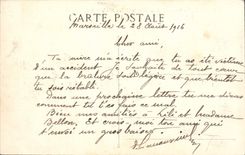 CARTE POSTALE
Marseille le 28 Août 1916
Cher ami,
Ta mère m'a écrit que tu as été victime
d'un accident, je souhaite de tout cœur
que la brûlure soit légère et que bientôt
tu sois rétabli.
Dans une prochaine lettre, tu me diras
comment tu t'es fais ce mal.
Bien mes amitiés à Lili et madame
Et crois, moi ton ami qui
t'envoi un gros baiser